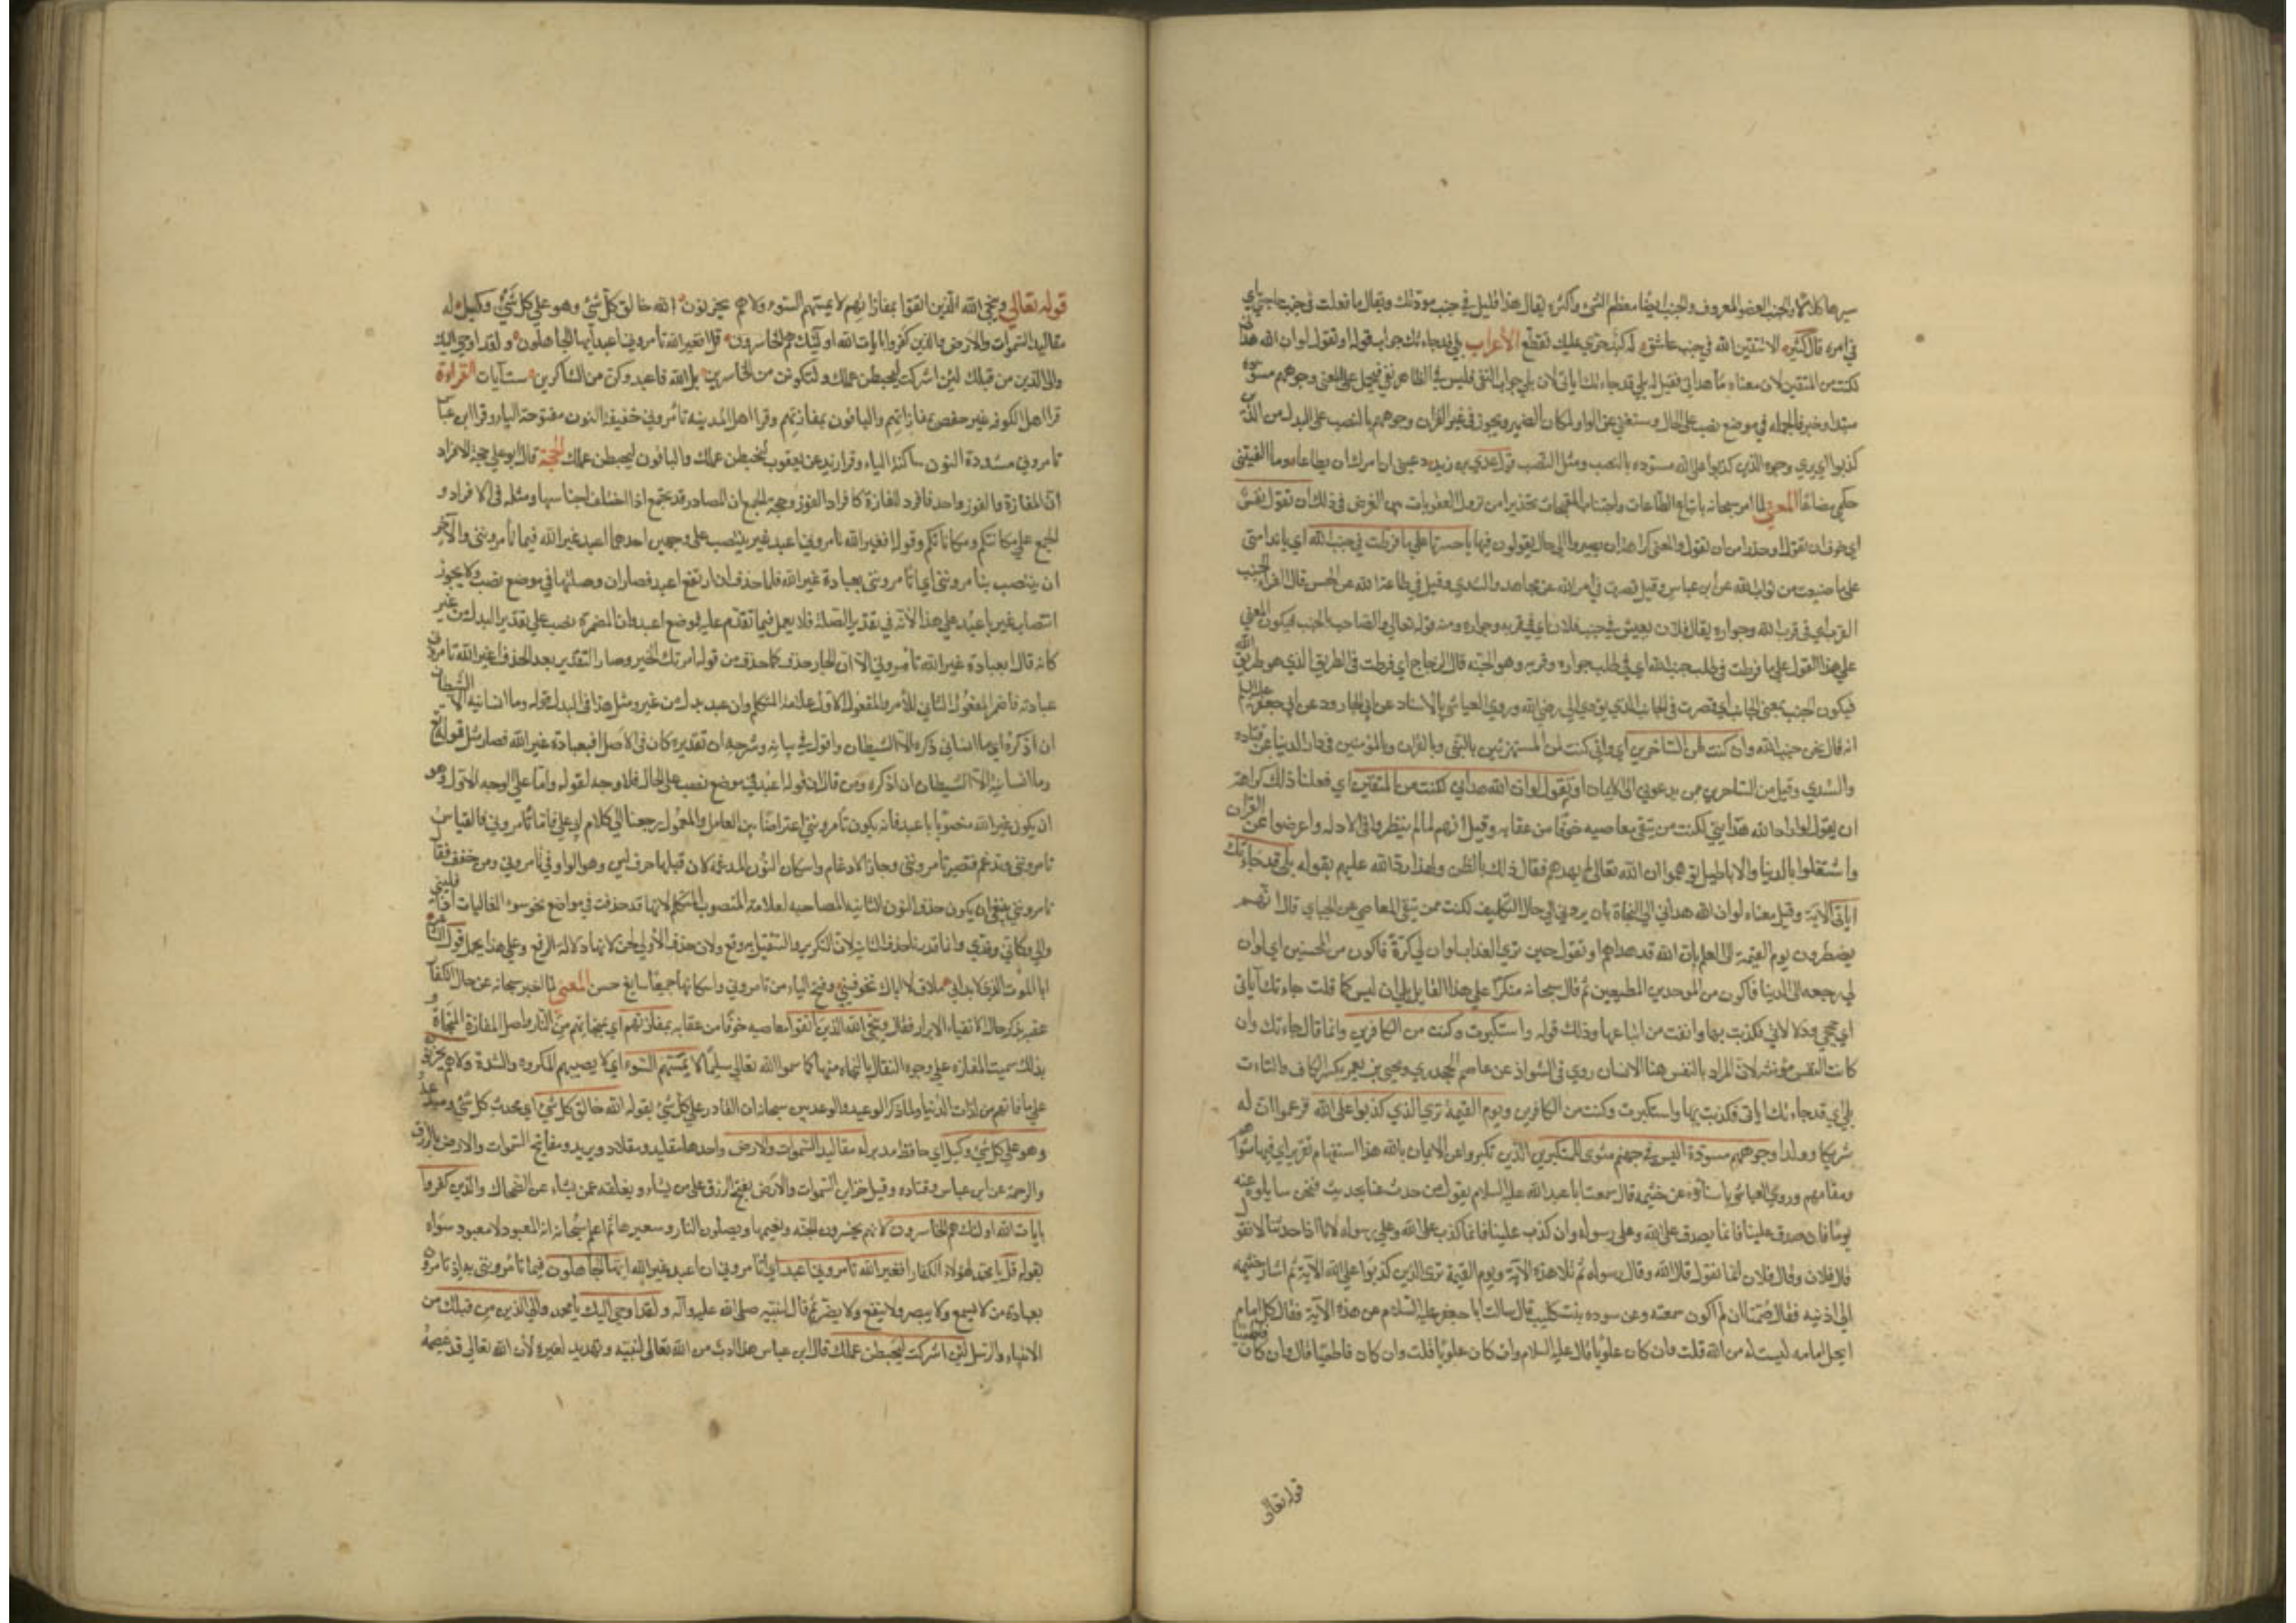 سيرها كلالا والجنب العضو المعروف والجنب ايضا معظم الشئ واكثره يقال هذا قليل في جنب مودتك ويقال ما فعلت في جنب حاجتي اي
في امره قال كثير الا تتقين الله في جنب عاشق له كبد حرى عليك تقطع الأعراب بلى قد جاءتك جواب قوله او تقول لو ان الله هداني
لكنت من المتقين لان معناه ما هداني فقيل له بلى قد جاءتك اياتي لان بلى جواب النفي فليس في الظاهر نفي فيحمل على المعنى وجوههم مسودة
مبتدا وخبر فالجمله في موضع نصب على الحال واستغني عن الواو لمكان الضمير ويجوز في غير القران وجوههم بالنصب على البدل من الذين
كذبوا اي ترى وجوه الذين كذبوا على الله مسوده بالنصب ومثل النصب قول عدي بن زيد دعيني ان امرك لن يطاعا وما الفيتني
حلمي مضاعا المعنى لما امر سبحانه باتباع الطاعات واجتناب المقبحات تحذيرا من نزول العقوبات بين الغرض في ذلك ان تقول نفس
اي خوف ان تقول او حذرا من ان تقول والمعنى كراهة ان تصيروا الى حال يقولون فيها يا حسرتا على ما فرطت في جنب الله اي يا ندامتي
على ما ضيعت من ثواب الله عن ابن عباس وقيل قصرت في امر الله عن مجاهد والسدي وقيل في طاعة الله عن الحسن قال الفراء الجنب
القرب اي في قرب الله وجواره يقال فلان يعيش في جنب فلان اي في قربه وجواره ومنه قوله تعالى والصاحب بالجنب فيكون المعنى
على هذا القول على ما فرطت في طلب جنب الله اي في طلب جواره وقربه وهو الجنه قال الزجاج اي فرطت في الطريق الذي هو طريق الله
فيكون الجنب بمعنى الجانب اي قصرت في الجانب الذي يؤدي الى رضى الله وروى العياشي بالاسناد عن ابي الجارود عن ابي جعفر عليه السلم
انه قال نحن جنب الله وان كنت لمن الساخرين اي واني كنت لمن المستهزئين بالنبي وبالقران وبالمؤمنين في دار الدنيا عن قتاده
والسدي وقيل من الساخرين ممن يدعوني الى الايمان او تقول لو ان الله هداني لكنت من المتقين اي فعلنا ذلك كراهة
ان يقول لو اراد الله هدايتي لكنت ممن يتقي معاصيه خوفا من عقابه وقيل انهم لما لم ينظروا في الادله واعرضوا عن القران
واشتغلوا بالدنيا والاباطيل توهموا ان الله تعالى لم يهدهم فقال ذلك بالظن ولهذا رد الله عليهم بقوله بلى قد جاءتك
اياتي الاية وقيل معناه لو ان الله هداني الى النجاة بان يردني الى حال التكليف لكنت ممن يتقي المعاصي عن الجبائي قال انهم
يضطرون يوم القيمة الى العلم بان الله قد هداهم او تقول حين ترى العذاب لو ان لي كرة فاكون من المحسنين اي لو ان
لي رجعه الى الدنيا فاكون من الموحدين المطيعين ثم قال سبحانه منكرا على هذا القايل بلى اي ليس كما قلت جاءتك آياتي
اي حججي ودلالاتي فكذبت بها وانفت من اتباعها وذلك قوله واستكبرت وكنت من الكافرين وانما قال جاءتك وان
كانت النفس مؤنثه لان المراد بالنفس هنا الانسان روي في الشواذ عن عاصم الجحدري ويحيى بن يعمر بكسر الكاف والتاءات
بلى اي قد جاءتك اياتي فكذبت بها واستكبرت وكنت من الكافرين ويوم القيمة ترى الذين كذبوا على الله فزعموا ان له
شريكا وولدا وجوههم مسودة اليس في جهنم مثوى للمتكبرين الذين تكبروا عن الايمان بالله هذا استفهام تقرير اي فيها مثواهم
ومقامهم وروى العياشي باسناده عن خيثمه قال سمعت ابا عبد الله عليه السلام يقول من حدث عنا بحديث فنحن سايلوه عنه
يوما فان صدق علينا فانما يصدق على الله وعلى رسوله وان كذب علينا فانما كذب على الله وعلى رسوله لانا اذا حدثنا لا نقول
قال فلان وقال فلان انما نقول قال الله وقال رسوله ثم تلا هذه الآية ويوم القيمة ترى الذين كذبوا على الله الآية ثم اشار خيثمه
الى اذنيه فقال صمتا ان لم اكون سمعته وعن سوده بنت كليب قال سالت ابا جعفر عليه السلام عن هذه الآية فقال كل امام
انتحل امامه ليست له من الله قلت وان كان علويا قال عليه السلام وان كان علويا قلت وان كان فاطميا قال وان كان فاطميا
قوله تعالى
قوله تعالى وينجي الله الذين اتقوا بمفازاتهم لا يمسهم السوء ولا هم يحزنون الله خالق كل شئ وهو على كل شئ وكيل له
مقاليد السموات والارض والذين كفروا بايات الله اولئك هم الخاسرون قل افغير الله تأمروني اعبد ايها الجاهلون ولقد اوحي اليك
والى الذين من قبلك لئن اشركت ليحبطن عملك ولتكونن من الخاسرين بل الله فاعبد وكن من الشاكرين ست آيات القراءة
قرا اهل الكوفه غير حفص بمفازاتهم والباقون بمفازتهم وقرا اهل المدينه تأمروني خفيفة النون مفتوحة الياء وقرا ابن عباس
تأمروني مشددة النون ساكنة الياء وقرا زيد عن يعقوب لنحبطن عملك والباقون ليحبطن عملك الحجة قال ابو علي حجة الافراد
ان المفازة والفوز واحد فافرد المفازة كافراد الفوز وحجة الجمع ان المصادر قد تجمع اذا اختلف اجناسها ومثله في الافراد و
الجمع على مكانتكم ومكاناتكم وقوله افغير الله تأمروني اعبد غير ينتصب على وجهين احدهما اعبد غير الله فيما تأمرونني والآخر
ان ينتصب بتأمرونني اي اتأمرونني بعبادة غير الله فلما حذف ان ارتفع اعبد فصار ان وصلتها في موضع نصب ولا يجوز
انتصاب غير باعبد على هذا لانه في تقدير الصلة فلا يعمل فيما تقدم عليه فموضع اعبد وان المضمرة نصب على تقدير البدل من غير
كانه قال ابعبادة غير الله تأمروني الا ان الجار حذف كما حذف من قوله امرتك الخير وصار التقدير بعد الحذف اغير الله تأمروني
عبادته فاضمر المفعول الثاني للأمر والمفعول الاول علامة المتكلم وان اعبد بدل من غير ومثل هذا في البدل قوله وما انسانيه الا الشيطان
ان اذكره اي ما انساني ذكره الا الشيطان واقول في بيانه وشرحه ان تقديره كان في الاصل افبعبادة غير الله فصار مثل قوله تع
وما انسانيه الا الشيطان ان اذكره ومن قال ان قوله اعبد في موضع نصب على الحال فلا وجه لقوله واما على الوجه الاول وهو
ان يكون غير الله منصوبا باعبد فانه يكون تأمرونني اعتراضا بين العامل والمعمول رجعنا الى كلام ابي علي فاما تأمروني فالقياس
تأمرونني وتدغم فتصير تأمروني وجاز الادغام واسكان النون المدغمة لان قبلها حرف لين وهو الواو في تأمروني ومن خفف فقال
تأمروني ينبغي ان يكون حذف النون الثانيه المصاحبه لعلامة المنصوب المتكلم لانها قد حذفت في مواضع نحو يسوء الفاليات اذا فليني
واني وكاني وقدي وانما قدرنا حذف الثانيه لان التكرير والتثقيل به وقع ولان حذف الأولى لحن لانها دلالة الرفع وعلى هذا يحمل قول الشاعر
ابا الموت الذي لا بد اني ملاق لا اباك تخوفيني وفتح الياء من تأمروني واسكانها جميعا سايغ حسن المعنى لما اخبر سبحانه عن حال الكفار
عقبه بذكر حال الاتقياء الابرار فقال وينجي الله الذين اتقوا معاصيه خوفا من عقابه بمفازتهم اي بمنجاتهم من النار واصل المفازة المنجاة و
بذلك سميت المفازه على وجه التفال بالنجاه منها كما سموا اللديغ سليما لا يمسهم السوء اي لا يصيبهم المكروه والشدة ولا هم يحزنون
على ما فاتهم من لذات الدنيا ولما ذكر الوعيد والوعد بين سبحانه انه القادر على كل شئ بقوله الله خالق كل شئ اي محدث كل شئ ومبدعه
وهو على كل شئ وكيل اي حافظ مدبر له مقاليد السموات والارض واحدها مقليد ومقلاد ويريد مفاتيح السموات والارض بالرزق
والرحمة عن ابن عباس وقتاده وقيل خزاين السموات والارض يفتح الرزق على من يشاء ويغلقه عن يشاء عن الضحاك والذين كفروا
بايات الله اولئك هم الخاسرون لانهم يخسرون الجنه ونعيمها ويصلون النار وسعيرها ثم اعلم سبحانه انه المعبود لا معبود سواه
بقوله قل يا محمد لهؤلاء الكفار افغير الله تأمروني اعبد اي أتأمروني ان اعبد غير الله ايها الجاهلون فيما تأمرونني به اذ تأمروني
بعبادة من لا يسمع ولا يبصر ولا ينفع ولا يضر ثم قال لنبيه صلى الله عليه وآله ولقد اوحي اليك يا محمد والى الذين من قبلك من
الانبياء والرسل لئن اشركت ليحبطن عملك قال ابن عباس هذا ادب من الله تعالى لنبيه وتهديد لغيره لأن الله تعالى قد عصمه